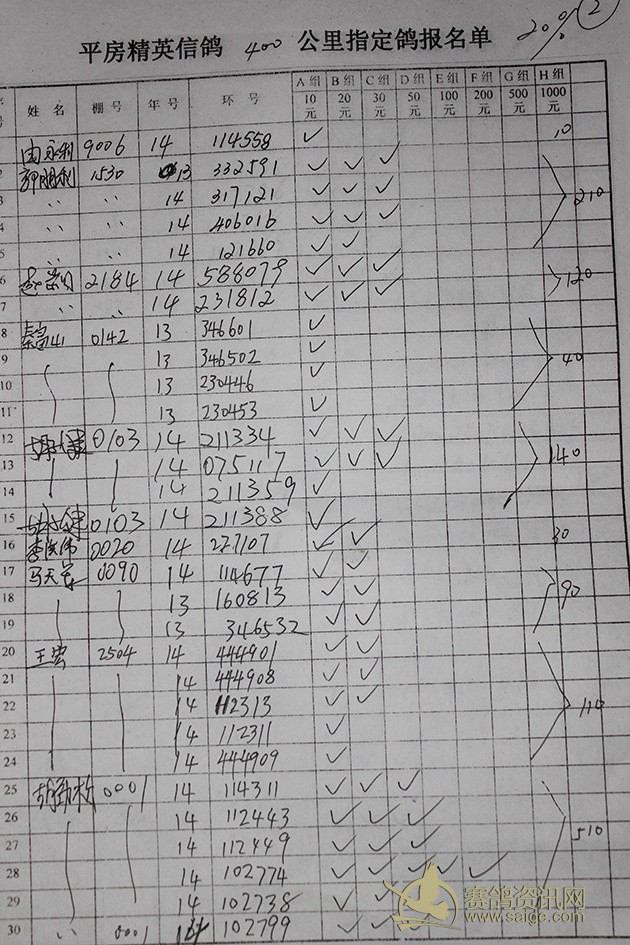 平房精英信鸽 400 公里指定鸽报名单 20% 2
号 姓 名 棚 号 年 号 环 号 A组 10元 B组 20元 C组 30元 D组 50元 E组 100元 F组 200元 G组 500元 H组 1000元
由永利 9006 14 114558 ✓ 10
1530 13 332591 ✓ ✓ ✓
3 〃 〃 14 317121 ✓ ✓ ✓ 210
4 〃 〃 14 406016 ✓ ✓ ✓
5 〃 〃 14 121660 ✓ ✓
6 2184 14 588079 ✓ ✓ ✓ 120
7 〃 〃 14 231812 ✓ ✓ ✓
8 秦富山 0142 13 346601 ✓
9 13 346502 ✓ 40
10 13 230446 ✓
11 13 230453 ✓
12 0103 14 211334 ✓ ✓ ✓
13 14 075117 ✓ ✓ ✓ 140
14 14 211359 ✓
15 0103 14 211388 ✓
16 0020 14 227107 ✓ ✓ 30
17 0090 14 114677 ✓ ✓
18 13 160813 ✓ ✓ 90
19 13 346532 ✓ ✓
20 王宏 2504 14 444901 ✓ ✓
21 14 444908 ✓ ✓
22 14 112313 ✓ ✓ 110
23 14 112311 ✓
24 14 444909 ✓
25 0001 14 114311 ✓ ✓ ✓
26 14 112443 ✓ ✓ ✓
27 14 112449 ✓ ✓ ✓ 510
28 14 102774 ✓ ✓ ✓ ✓ ✓
29 14 102738 ✓ ✓
30 〃 0001 14 102799 ✓
赛鸽资讯网
www.saige.com